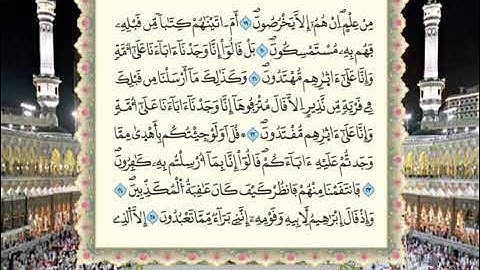 مِنْ عِلْمٍۖ اِنْ هُمُۥٓ إِلَّا يَخْرُصُونَۖ ١٩ أَمَ اٰتَيْنَٰهُمْ كِتَٰباٗ مِّن قَبْلِهِۦ
فَهُم بِهِۦ مُسْتَمْسِكُونَۖ ٢٠ بَلْ قَالُوٓاْ إِنَّا وَجَدْنَآ ءَابَآءَنَا عَلَىٰٓ أُمَّةٖ
وَإِنَّا عَلَىٰٓ ءَاثَٰرِهِم مُّهْتَدُونَۖ ٢١ وَكَذَٰلِكَ مَآ أَرْسَلْنَا مِن قَبْلِكَ
فِے قَرْيَةٖ مِّن نَّذِيرٍ اِلَّا قَالَ مُتْرَفُوهَآ إِنَّا وَجَدْنَآ ءَابَآءَنَا عَلَىٰٓ أُمَّةٖ
وَإِنَّا عَلَىٰٓ ءَاثَٰرِهِم مُّقْتَدُونَۖ ٢٢ قُلَ اَوَلَوْ جِئْتُكُم بِأَهْدَىٰ مِمَّا
وَجَدتُّمْ عَلَيْهِ ءَابَآءَكُمْۖ قَالُوٓاْ إِنَّا بِمَآ أُرْسِلْتُم بِهِۦ كَٰفِرُونَۖ
٢٣ فَانتَقَمْنَا مِنْهُمْ فَانظُرْ كَيْفَ كَانَ عَٰقِبَةُ الْمُكَذِّبِينَۖ ٢٤
وَإِذْ قَالَ إِبْرَٰهِيمُ لِأَبِيهِ وَقَوْمِهِۦٓ إِنَّنِے بَرَآءٞ مِّمَّا تَعْبُدُونَ ٢٥ إِلَّا اَلذِے